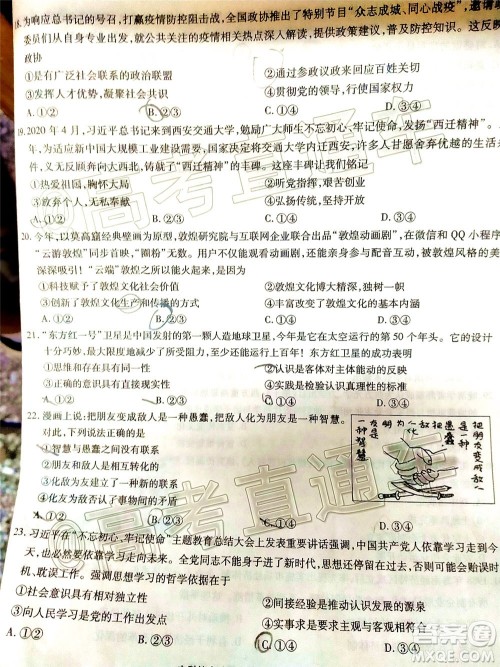 18.为响应总书记的号召，打赢疫情防控阻击战，全国政协推出了特别节目“众志成城、同心战疫”，邀请
委员们从自身专业出发，就公共关注的疫情相关热点深入解读，提供政策建议，普及防疫知识。这表明
政协
①是有广泛社会联系的政治联盟
②通过参政议政来回应百姓关切
③发挥人才优势，凝聚社会共识
④
A.①② B.②③ C.①④ D.③④
19.2020年4月，习近平总书记来到西安交通大学，勉励广大师生不忘初心，牢记使命，发扬“西迁精神”。
年，为适应新中国大规模工业建设需要，国家决定将交通大学内迁西安，许多人甘愿舍弃优越生活
义无反顾奔赴大西北，铸就了“西迁精神”的丰碑。这座丰碑让我们铭记
①热爱祖国，胸怀大局
②听党指挥，艰苦创业
③敌弃个人，无私奉献
④弘扬传统，
A.①② B.②③ C.①④ D.③④
20.今年，以莫高窟经典壁画为原型，敦煌研究院与互联网企业联合出品“敦煌动画剧”，在微信和QQ小程序
“云游敦煌”同步首映，“圈粉”无数。用户还可以亲身参与互动
深深吸引！“云端”敦煌动画剧
①科技赋予了敦煌文化社会价值
②敦煌文化博大精深，独树一帜
③创新了敦煌文化生产和传播方式
④丰富了敦煌文化的基本内涵
A.①② B.②③ C.①④ D.③④
21.“东方红一号”卫星是中国发射的第一颗人造地球卫星，今年是它在太空运行的第50个年头。它的设计
十分巧妙，最大限度地减少了所受阻力，至今还能运行上百年！东方红卫星的成功表明
①意识具有直接现实性
②认识是客体对主体能动的反映
③正确的意识具有强大的能动性
④实践是检验认识真理性的标准
A.①② B.②③ C.①④ D.③④
22.漫画上说：把朋友变成敌人是一种愚蠢，把敌人化为朋友是一种智慧。
对此，下列说法正确的是
①智慧与愚蠢之间没有联系
②朋友和敌人是相互转化的
③朋友与敌人之间存在着联系
④朋友和敌人否认了事物间的矛盾
A.①② B.②③ C.①④ D.③④
把朋友变成敌人
是一种愚蠢
把敌人化为朋友
是一种智慧
23.习近平在“不忘初心、牢记使命”主题教育总结大会上发表重要讲话强调，中国共产党人依靠学习走到今
天，也必然要依靠学习走向未来。全党同志不能身子进了新时代，思想还停留在过去，看问题
机、耽误工作。这强调思想学习的哲学依据在于
①社会意识具有相对独立性
②价值观影响人们认识和改造世界
③向人民学习是党的工作出发点
④思想政治意识推动社会发展
A.①② B.②③ C.①④ D.③④
@高考直通车
@高考直通车
答案圈
MXQE.COM